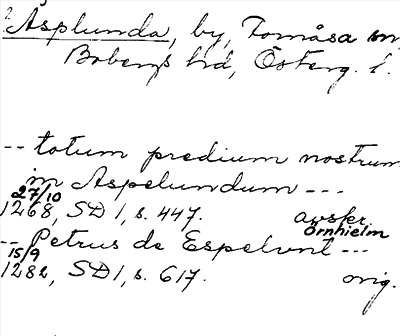 ? Äsplunda, by, Tomåsa sn,
Bobergs hd, Österg. l.
-- totum predium nostrum
in Aspelundum ---
27/10
1268, SD 1, s. 447. avskr.
Örnhielm
-- Petrus de Espelvnt ---
15/9
1282, SD 1, s. 617. orig.